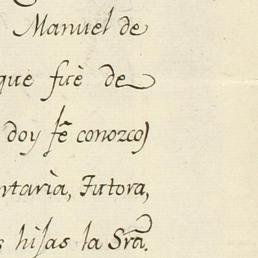 Manuel de
que fué de
doy fe conozco)
rtaria, Tutora,
s hijas la Sra.